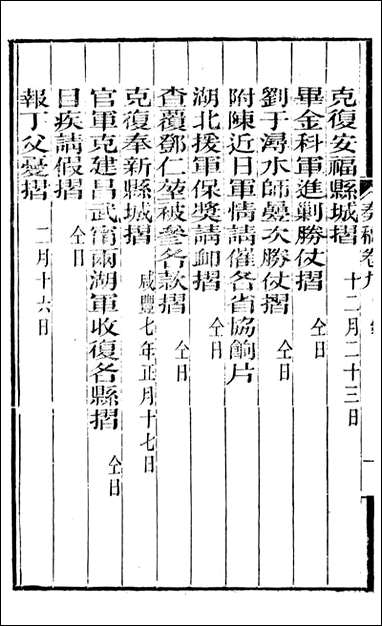 克復安福縣城摺 十二月二十三日
畢金科軍進剿勝仗摺 仝日
劉于潯水師曡次勝仗摺 仝日
附陳近日軍情請催各省協餉片
湖北援軍保獎請卹摺 仝日
查覆鄧仁堃被參各款摺 仝日
克復奉新縣城摺 咸豐七年正月十七日
官軍克建昌武甯兩湖軍收復各縣摺 仝日
目疾請假摺 仝日
報丁父憂摺 二月十六日
奏稿卷九